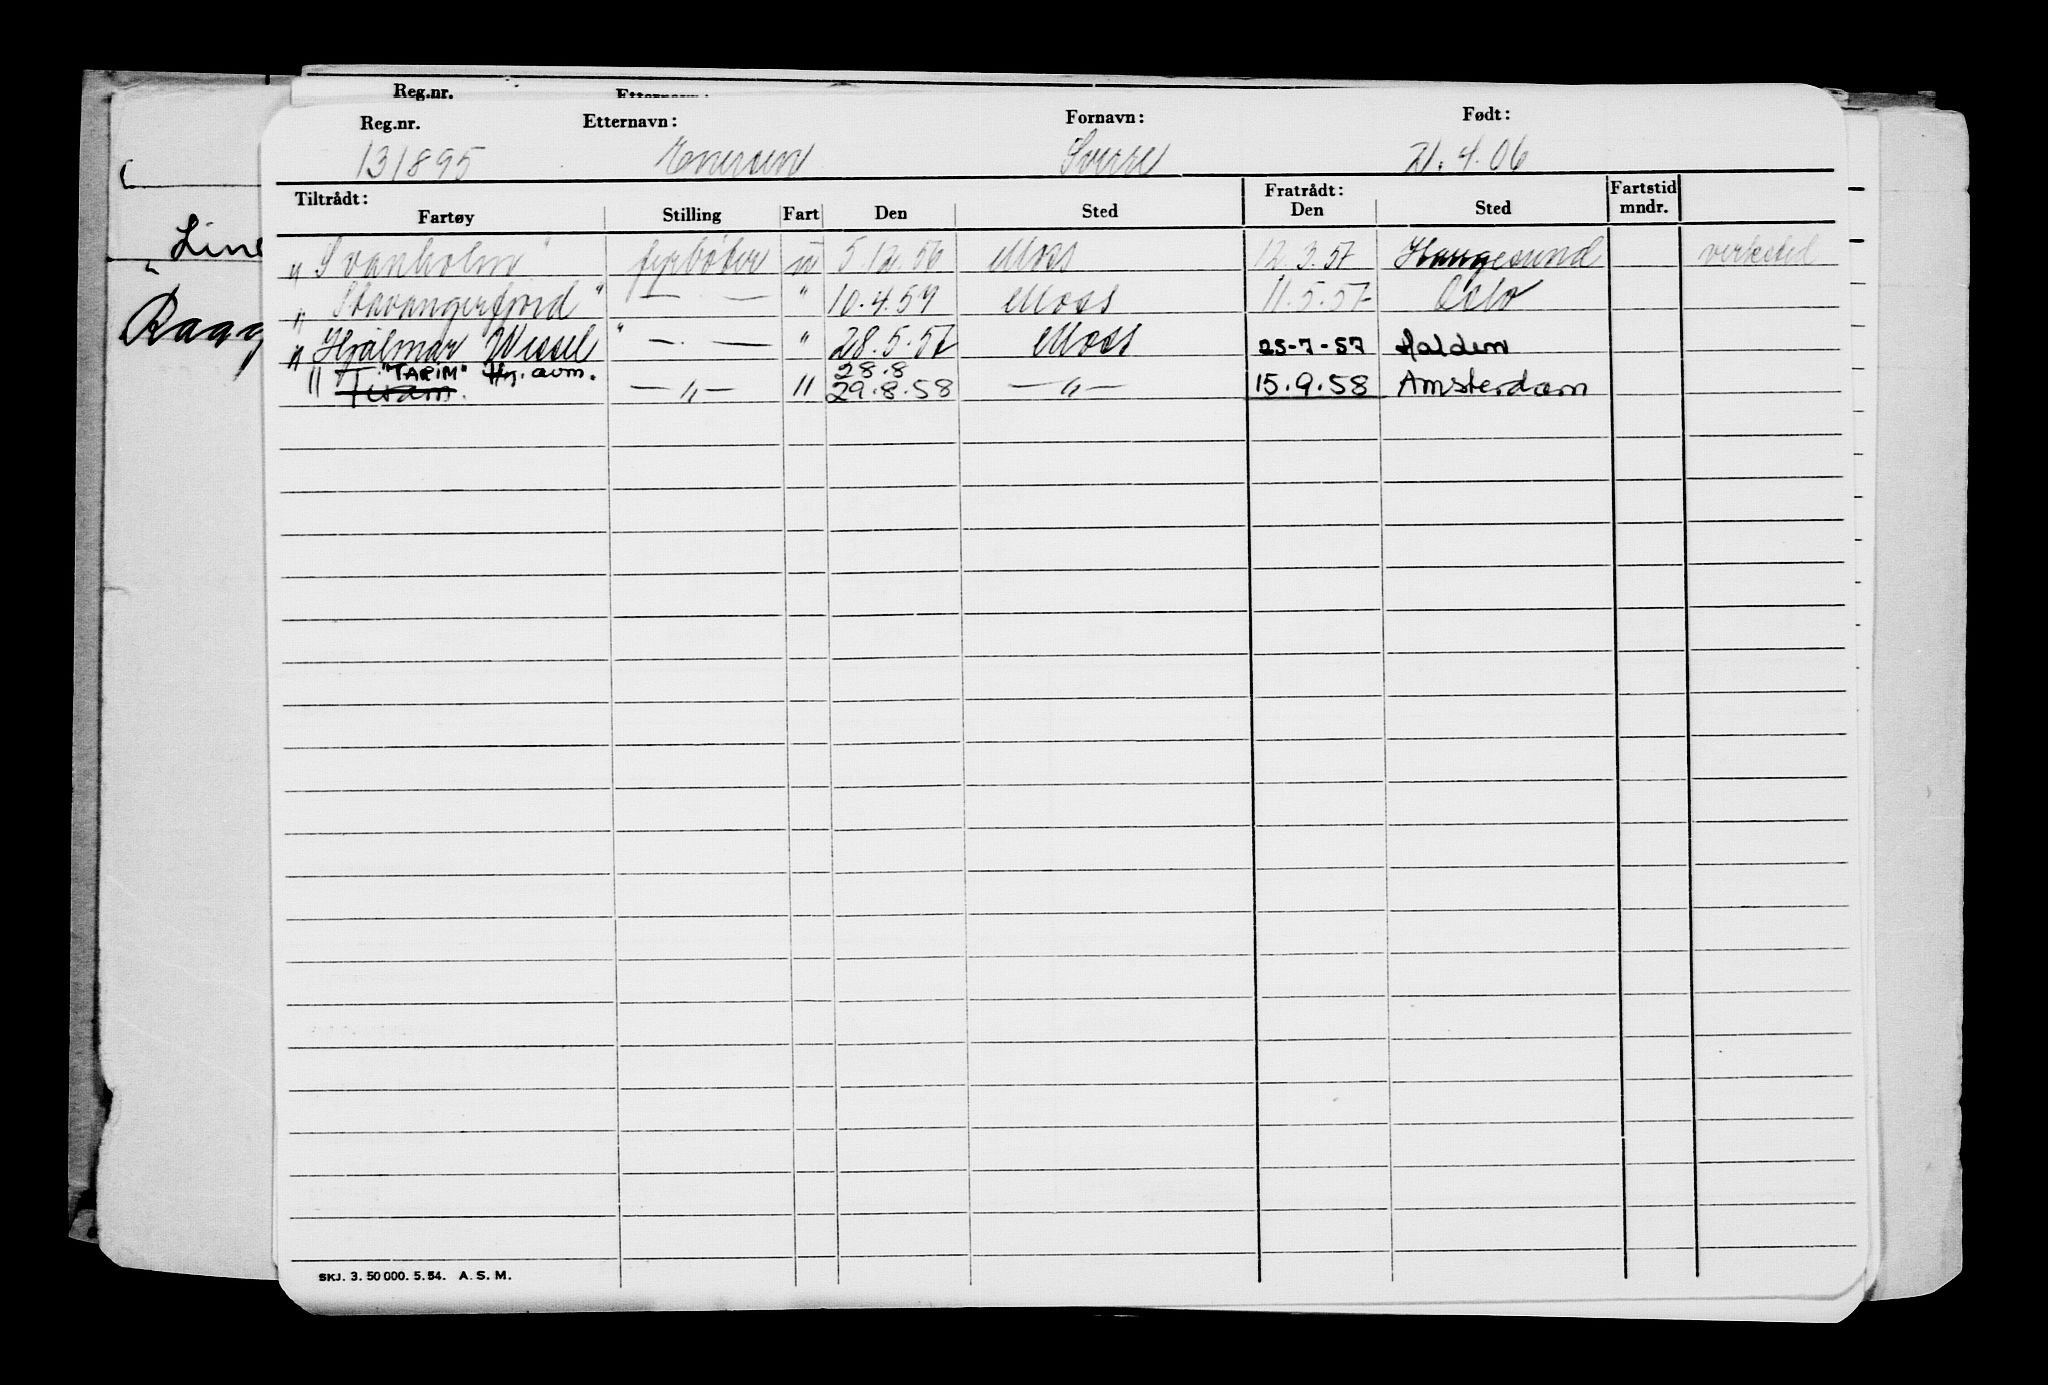 Reg.nr. Etternavn:
Reg.nr. Etternavn: Fornavn: Født:
131895 Enersen Sverre 21.4.06
Tiltrådt: Fratrådt: Fartstid
Fartøy Stilling Fart Den Sted Den Sted mndr.
" Svanholm " fyrbøter u 5.12.56 Moss 12.3.57 Haugesund verksted
" Stavangerfjord " — . — " 10.4.57 Moss 11.5.57 Oslo
" Hjalmar Wessel " — . — " 28.5.57 Moss 25-7-57 Halden
"TARIM" Hj. avm. 28.8
" — " — " 29.8.58 — " — 15.9.58 Amsterdam
Line
Raag
SKJ. 3. 50 000. 5. 54. A. S. M.